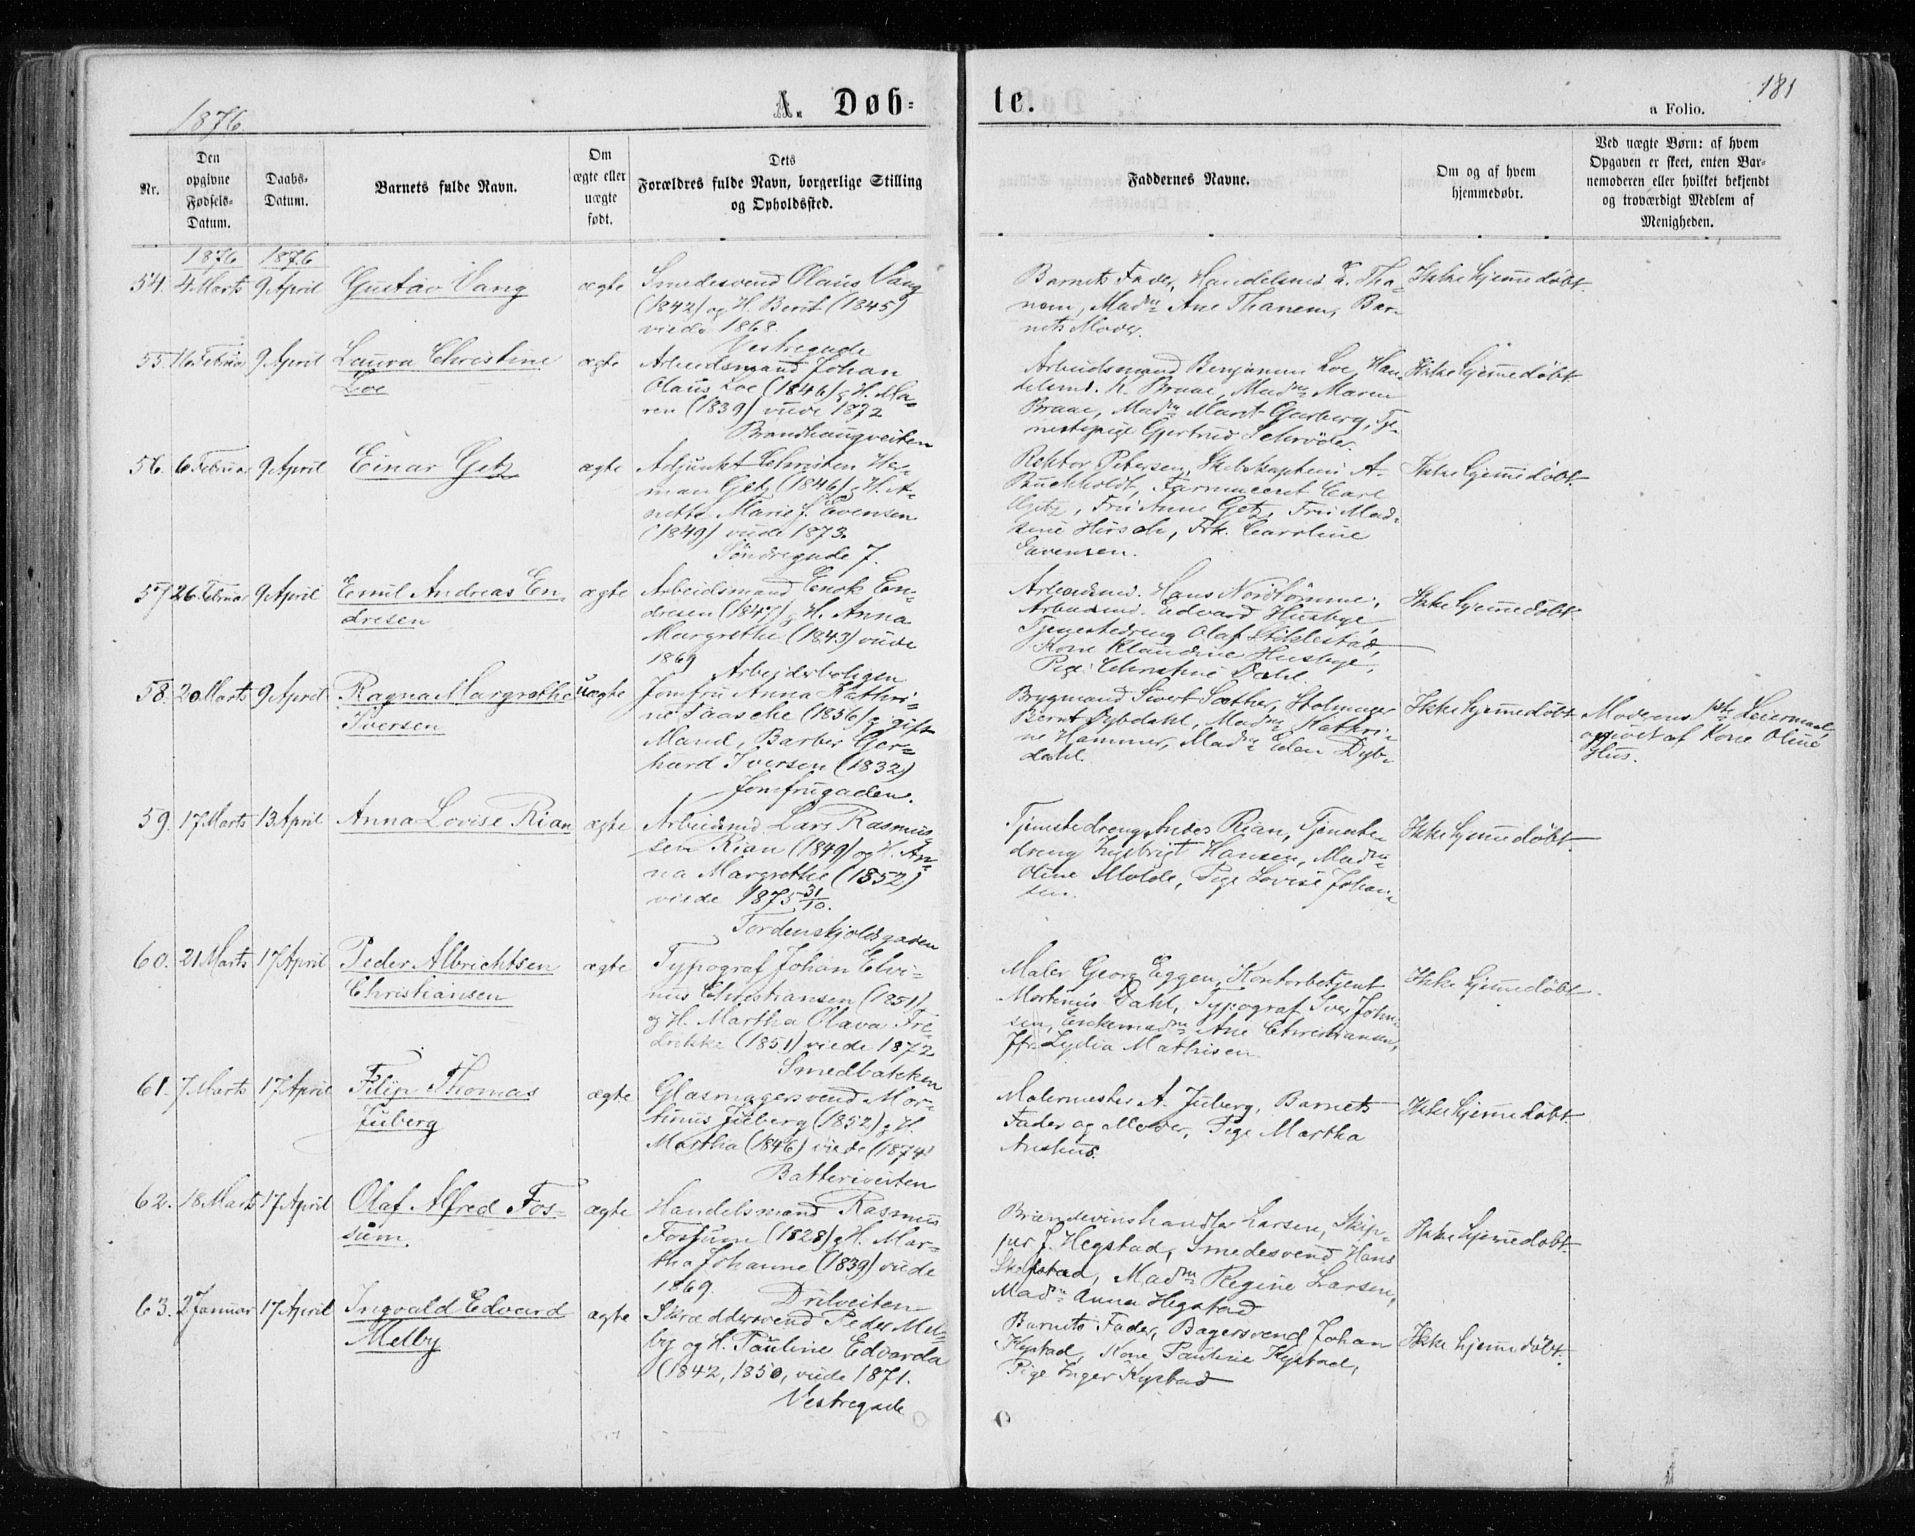 1876
A. Døb-
te.
181
a Folio.
Nr.
Den opgivne Fødsels-Datum.
Daabs-Datum.
Barnets fulde Navn.
Om ægte eller uægte født.
Dets Forældres fulde Navn, borgerlige Stilling og Opholdssted.
Faddernes Navne.
Om og af hvem hjemmedøbt.
Ved uægte Børn: af hvem Opgaven er skeet, enten Barnemoderen eller hvilket bekjendt og troværdigt Medlem af Menigheden.
1876 1876
54. 4 Marts 9 April Gustav Vang ægte
Smedesvend Olaus Vang
(1842) og H. Berit (1845)
viede 1868.
Vestregade
Barnets Fader, Handelsmd Tha-
nem, Madm Ane Thanem, Bar-
nets Moder.
Ikke hjemmedøbt.
55. 16 Februar 9 April Laura Christine
Loe
ægte
Arbeidsmand Johan
Olaus Loe (1846) g H. Ma-
ren (1839) viede 1872
Brandhaugveiten
Arbeidsmand Benjamin Loe, Han-
delsmd. K. Braae, Madm Maren
Braae, Madm Marit Garberg, Tje-
nestepige Gjertrud Schrøder.
Ikke hjemmedøbt
56. 6 Februar 9 April Einar Getz ægte
Adjunkt Christen Her-
man Getz (1846) g H. A-
nette Marie J. Evensen
(1849) viede 1873.
Søndregade 7.
Rektor Petersen, Skibskaptein A.
Buckholdt, Farmaceut Carl
Getz, Frü Anne Getz, Frü Mad-
sine Hirsch, Frk. Caroline
Evensen.
Ikke hjemmedøbt.
57 26 Februar 9 April Emil Andreas En-
dresen
ægte
Arbeidsmand Enok En-
dresen (1847) g H. Anna
Margrethe (1843) viede
1869
Arbejderboligen
Arbeidsmd. Hans Nordtømme,
Arbeidsmd. Edvard Husbye,
Tjenestedreng Olaf Stiklestad,
Kone Klaudine Husbye,
Pige Christine Dahl.
Ikke hjemmedøbt
58. 20 Marts 9 April Ragna Margrethe
Iversen
uægte
Jomfru Anna Kathri-
ne Paasche (1856) g gift
Mand, Barber Ger-
hard Iversen (1832)
Jomfrugaden.
Brygmand Sivert Sæther,
Bernt Dybdahl, Madm Kathri-
ne Hammer, Madm Elen Dyb-
dahl.
Ikke hjemmedøbt
Moderens 1ste Leiermaal
opgivet af Kone Oline
Hus.
59. 17 Marts 13 April Anna Lovise Rian ægte
Arbeidsmd Lars Rasmus-
sen Rian (1849) og H. An-
na Margrethe (1852)
viede 1875 31/10.
Tordenskjoldsgaden
Tjenestedreng Andes Rian, Tjeneste-
dreng Ingebrigt Hansen, Madm
Oline Molde, Pige Lovise Johan-
sen.
Ikke hjemmedøbt
60. 21 Marts 17 April Peder Albrichtsen
Christiansen
ægte
Typograf Johan Elvi-
nus Christiansen (1851)
og H. Martha Olava Fre-
drikke (1851) viede 1872
Smedbakken
Maler Georg Eggen, Kontorbetjent
Mortinus Dahl, Typograf Iver John-
sen, Enkemadm Ane Christiansen,
Jfr. Lydia Mathisen.
Ikke hjemmedøbt
61. 7 Marts 17 April Filip Thomas
Juberg
ægte
Glasmagersvend Mor-
tinus Juberg (1852) g H.
Martha (1846) viede (1874)
Batteriveiten
Malermester A. Juberg, Barnets
Fader og Moder, Pige Martha
Aushus.
Ikke hjemmedøbt.
62. 18 Marts 17 April Olaf Alfred Fos-
sum
ægte
Handelsmand Rasmus
Fossum (1828) g H. Mar-
tha Johanne (1839) viede
1869.
Drilveiten
Brændevinshandler Larsen, Skip-
per J. Hegstad, Smedesvend Hans
Skefstad, Madm Regine Larsen,
Madm Anna Hegstad
Ikke hjemmedøbt.
63. 2 Januar 17 April Ingvald Edvard
Melby
ægte
Skræddersvend Peder Mel-
by og H. Pauline Edvarda
(1842, 1850, viede 1871.
Vestregade
Barnets Fader, Bagersvend Johan
Kystad, Kone Pauline Kystad,
Pige Inger Kystad
Ikke hjemmedøbt.